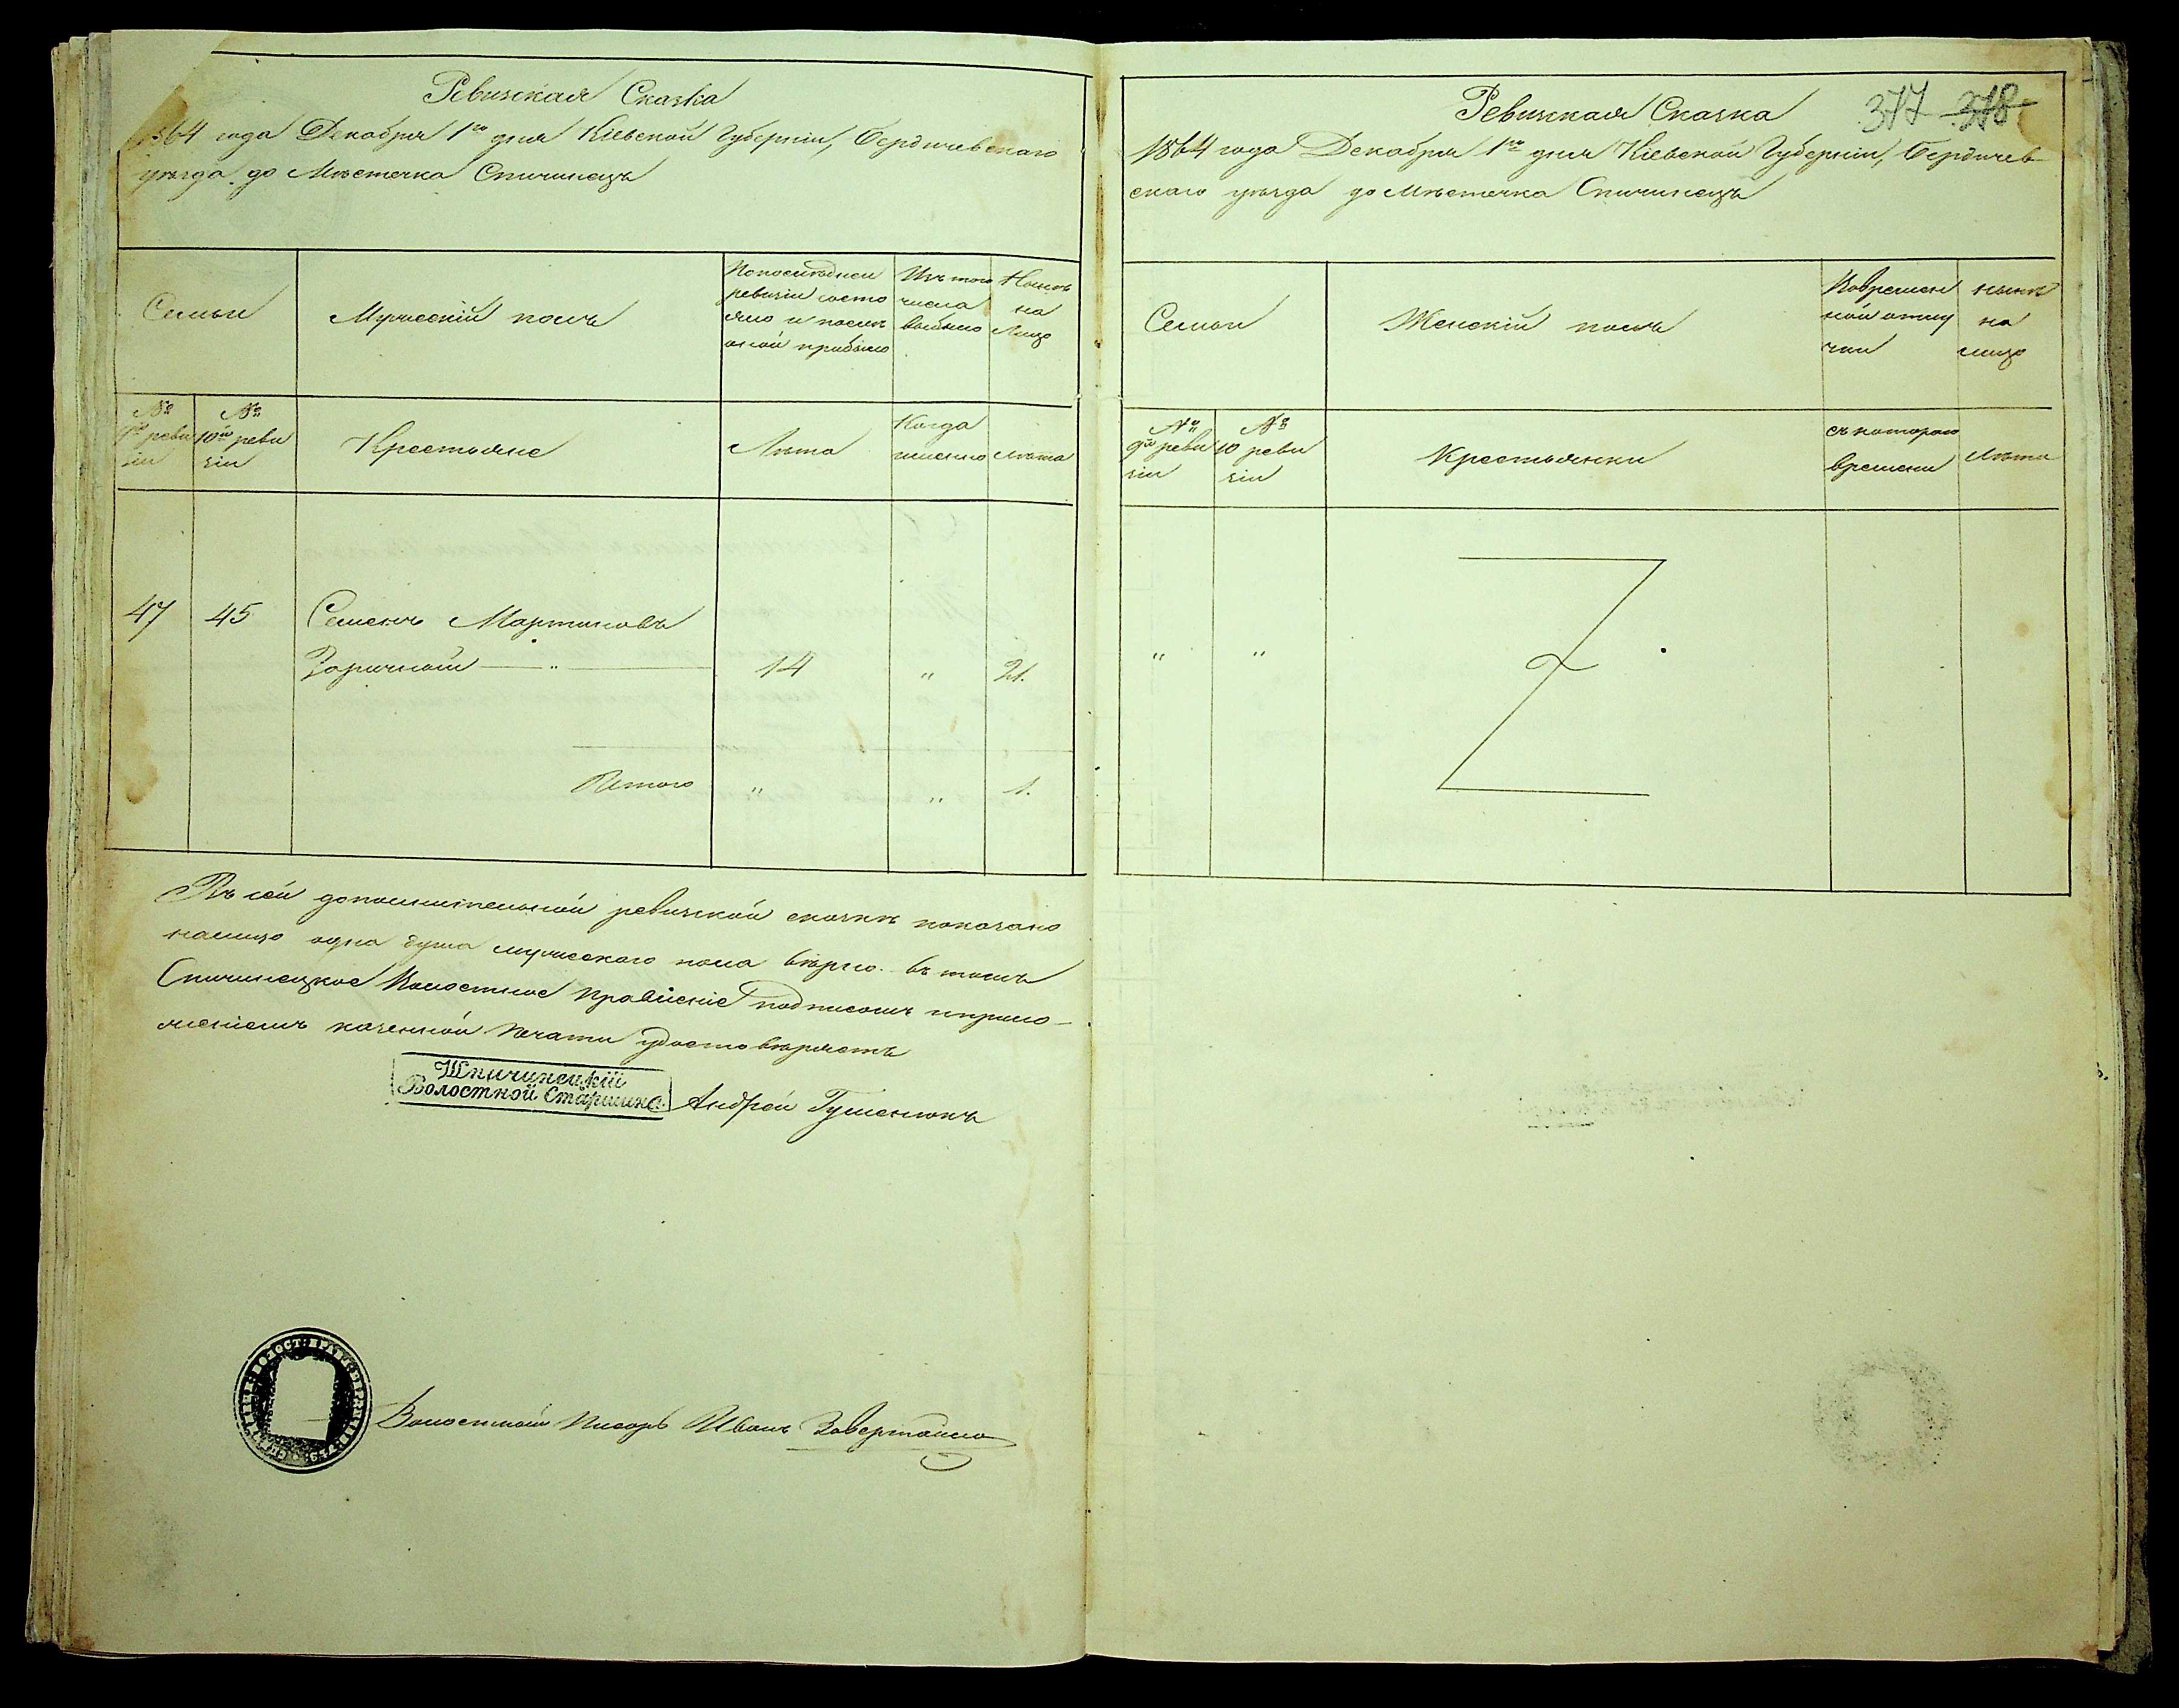 Ревизская Сказка
1864 года Декабря 1го дня Кіевской Губерніи, Бердичевскаго
уѣзда до Мѣстечка Спичинецъ
Семьи
Мужескій полъ
По послѣдней
ревизіи состо
яло и послѣ
оной прибыло
Изъ того
числа
выбыло
Нынѣ
на
Лицо
№
9й реви
зіи
№
10й реви
зіи
Крестьяне
Лѣта
Когда
именно
лѣта
47 45 Семенъ Мартиновъ
Заричный 14 " 21.
Итого " " 1.
Въ сей дополнительной ревизской сказкѣ показано
налицо одна душа мужескаго пола вѣрно. въ томъ
Спичинецкое Волостное Правленіе подписомъ и прило-
женіемъ казенной печати удостовѣряетъ
Шпичинецкій
Волостной Старшина
Андрей Гуменюкъ
Волостный Писарь Иванъ
377 378
Ревизская Сказка
1864 года Декабря 1го дня Кіевской Губерніи, Бердичев-
скаго уѣзда до Мѣстечка Спичинецъ
Семьи
Женскій полъ
Во времен
ной отлу
чки
нынѣ
на
лицо
№
9й реви
зіи
№
10 реви
зіи
Крестьянки
съ котораго
времени
Лѣта
" "